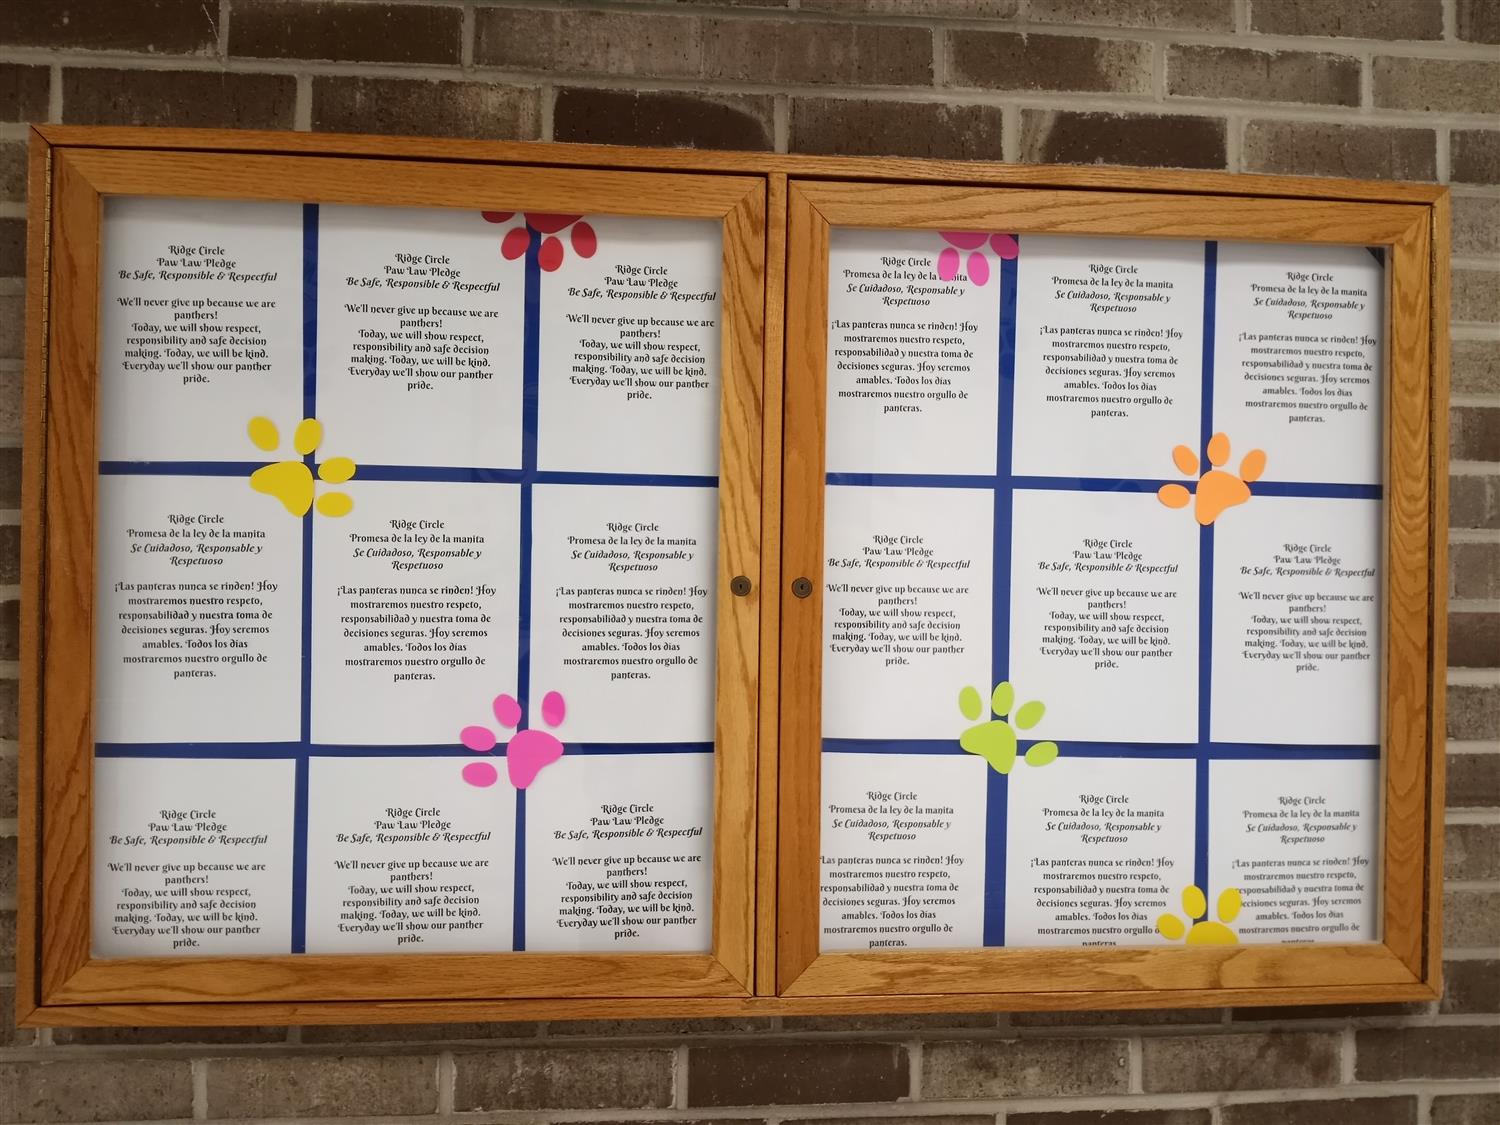 Ridge Circle
Paw Law Pledge
Be Safe, Responsible & Respectful
We'll never give up because we are
panthers!
Today, we will show respect,
responsibility and safe decision
making. Today, we will be kind.
Everyday we'll show our panther
pride.
Ridge Circle
Paw Law Pledge
Be Safe, Responsible & Respectful
We'll never give up because we are
panthers!
Today, we will show respect,
responsibility and safe decision
making. Today, we will be kind.
Everyday we'll show our panther
pride.
Ridge Circle
Paw Law Pledge
Be Safe, Responsible & Respectful
We'll never give up because we are
panthers!
Today, we will show respect,
responsibility and safe decision
making. Today, we will be kind.
Everyday we'll show our panther
pride.
Ridge Circle
Promesa de la ley de la manita
Se Cuidadoso, Responsable y
Respetuoso
¡Las panteras nunca se rinden! Hoy
mostraremos nuestro respeto,
responsabilidad y nuestra toma de
decisiones seguras. Hoy seremos
amables. Todos los dias
mostraremos nuestro orgullo de
panteras.
Ridge Circle
Promesa de la ley de la manita
Se Cuidadoso, Responsable y
Respetuoso
¡Las panteras nunca se rinden! Hoy
mostraremos nuestro respeto,
responsabilidad y nuestra toma de
decisiones seguras. Hoy seremos
amables. Todos los dias
mostraremos nuestro orgullo de
panteras.
Ridge Circle
Promesa de la ley de la manita
Se Cuidadoso, Responsable y
Respetuoso
¡Las panteras nunca se rinden! Hoy
mostraremos nuestro respeto,
responsabilidad y nuestra toma de
decisiones seguras. Hoy seremos
amables. Todos los dias
mostraremos nuestro orgullo de
panteras.
Ridge Circle
Paw Law Pledge
Be Safe, Responsible & Respectful
We'll never give up because we are
panthers!
Today, we will show respect,
responsibility and safe decision
making. Today, we will be kind.
Everyday we'll show our panther
pride.
Ridge Circle
Paw Law Pledge
Be Safe, Responsible & Respectful
We'll never give up because we are
panthers!
Today, we will show respect,
responsibility and safe decision
making. Today, we will be kind.
Everyday we'll show our panther
pride.
Ridge Circle
Paw Law Pledge
Be Safe, Responsible & Respectful
We'll never give up because we are
panthers!
Today, we will show respect,
responsibility and safe decision
making. Today, we will be kind.
Everyday we'll show our panther
pride.
Ridge Circle
Promesa de la ley de la manita
Se Cuidadoso, Responsable y
Respetuoso
¡Las panteras nunca se rinden! Hoy
mostraremos nuestro respeto,
responsabilidad y nuestra toma de
decisiones seguras. Hoy seremos
amables. Todos los dias
mostraremos nuestro orgullo de
panteras.
Ridge Circle
Promesa de la ley de la manita
Se Cuidadoso, Responsable y
Respetuoso
¡Las panteras nunca se rinden! Hoy
mostraremos nuestro respeto,
responsabilidad y nuestra toma de
decisiones seguras. Hoy seremos
amables. Todos los dias
mostraremos nuestro orgullo de
panteras.
Ridge Circle
Promesa de la ley de la manita
Se Cuidadoso, Responsable y
Respetuoso
¡Las panteras nunca se rinden! Hoy
mostraremos nuestro respeto,
responsabilidad y nuestra toma de
decisiones seguras. Hoy seremos
amables. Todos los dias
mostraremos nuestro orgullo de
panteras.
Ridge Circle
Paw Law Pledge
Be Safe, Responsible & Respectful
We'll never give up because we are
panthers!
Today, we will show respect,
responsibility and safe decision
making. Today, we will be kind.
Everyday we'll show our panther
pride.
Ridge Circle
Paw Law Pledge
Be Safe, Responsible & Respectful
We'll never give up because we are
panthers!
Today, we will show respect,
responsibility and safe decision
making. Today, we will be kind.
Everyday we'll show our panther
pride.
Ridge Circle
Paw Law Pledge
Be Safe, Responsible & Respectful
We'll never give up because we are
panthers!
Today, we will show respect,
responsibility and safe decision
making. Today, we will be kind.
Everyday we'll show our panther
pride.
Ridge Circle
Promesa de la ley de la manita
Se Cuidadoso, Responsable y
Respetuoso
¡Las panteras nunca se rinden! Hoy
mostraremos nuestro respeto,
responsabilidad y nuestra toma de
decisiones seguras. Hoy seremos
amables. Todos los dias
mostraremos nuestro orgullo de
panteras.
Ridge Circle
Promesa de la ley de la manita
Se Cuidadoso, Responsable y
Respetuoso
¡Las panteras nunca se rinden! Hoy
mostraremos nuestro respeto,
responsabilidad y nuestra toma de
decisiones seguras. Hoy seremos
amables. Todos los dias
mostraremos nuestro orgullo
panteras
Ridge Circle
Promesa de la ley de la manita
Se Cuidadoso, Responsable y
Respetuoso
¡Las panteras nunca se rinden! Hoy
mostraremos nuestro respeto,
responsabilidad y nuestra toma de
decisiones seguras. Hoy seremos
amables. Todos los dias
mostraremos nuestro orgullo de